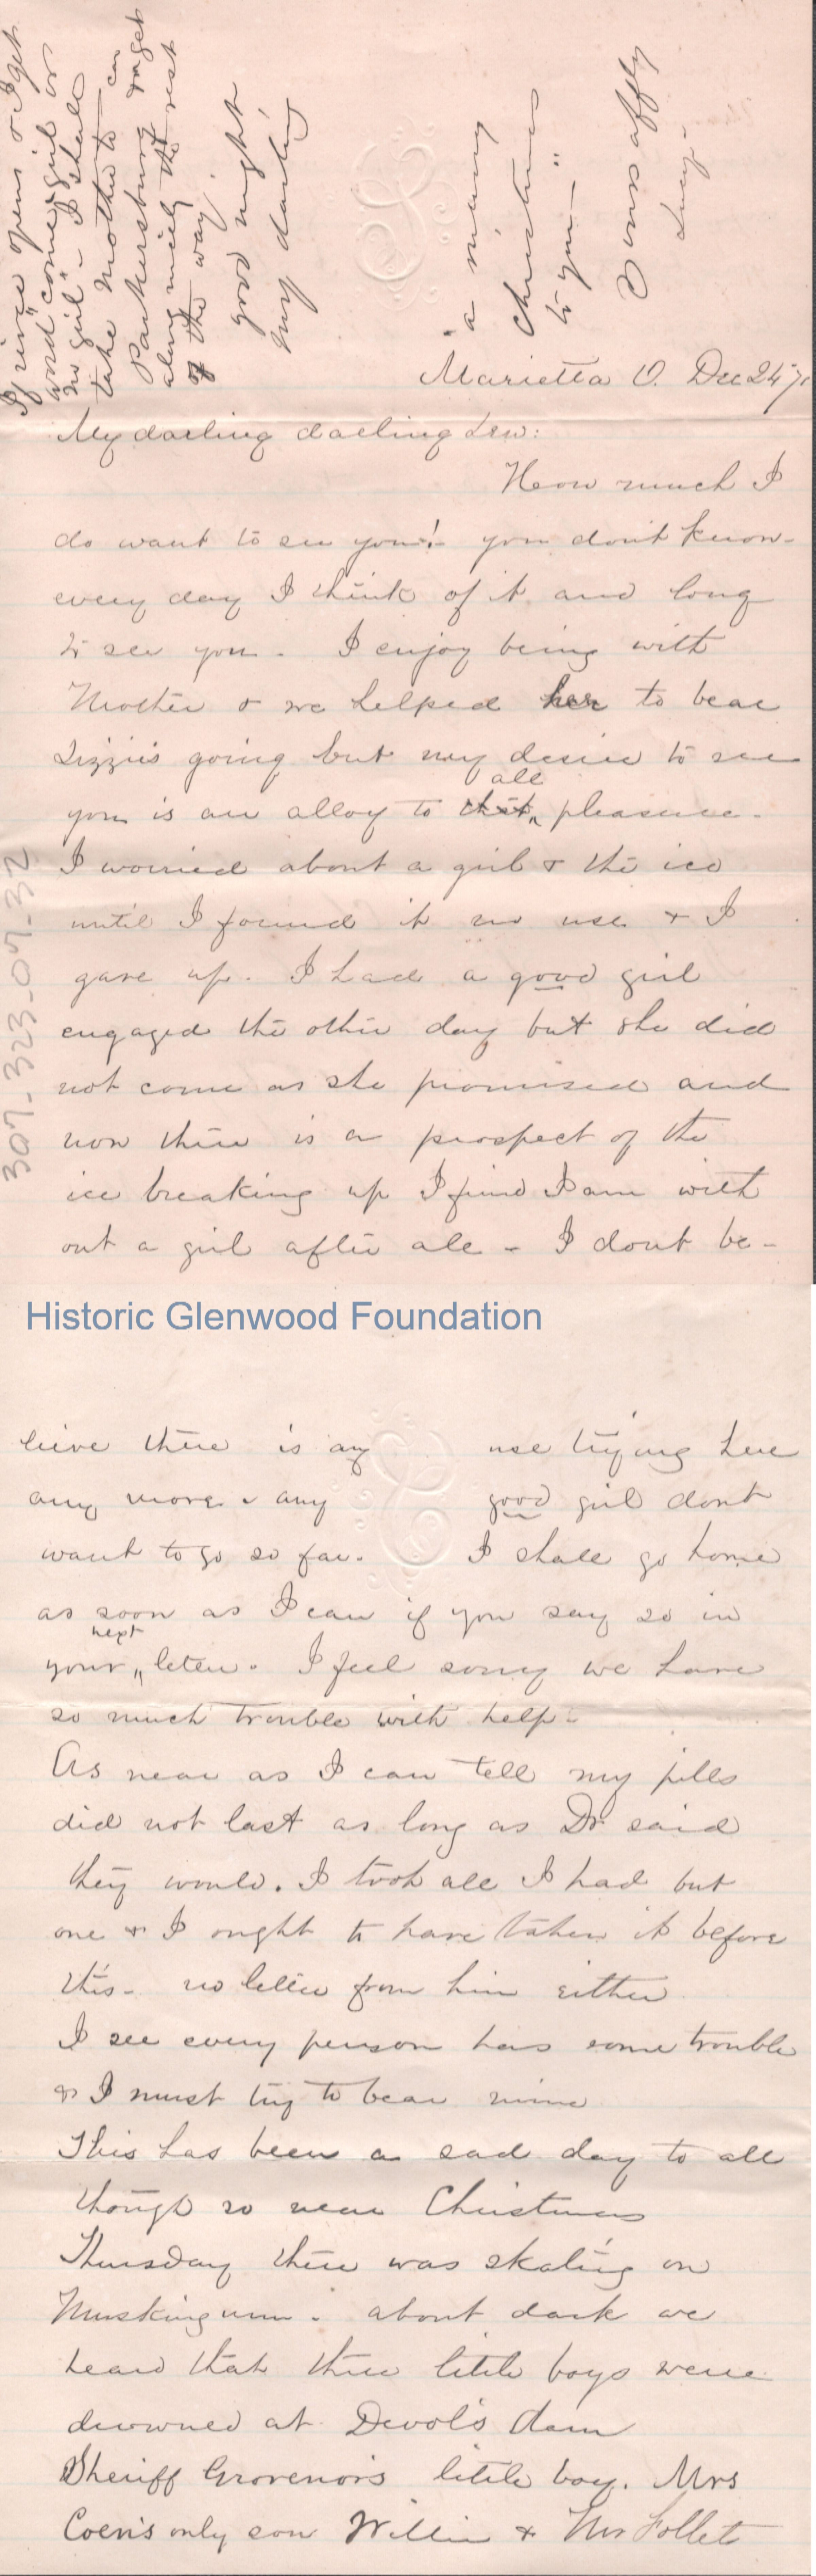 If river opens & I get
word "come & girl or
no girl" - I shall
take Mother to
Parkersburg & get
along nicely the rest
of the way.
good night
my darling
a merry
christmas
to you -
Yours affly
Lucy -
Marietta O. Dec 24 71
My darling darling Lew:
How much I
do want to see you! you don't know -
every day I think of it and long
to see you - I enjoy being with
Mother & we helped her to bear
Lizzie's going but my desire to see
all
you is an alloy to that pleasure -
I worried about a girl & the ice
until I found it no use & I
gave up. I had a good girl
engaged the other day but she did
not come as she promised and
now there is a prospect of the
ice breaking up I find I am with
out a girl after all - I dont be -
307-323-07-32
Historic Glenwood Foundation
lieve there is any use trying here
any more & any good girl dont
want to go so far. I shall go home
as soon as I can if you say so in
next
your letter. I feel sorry we have
so much trouble with help -
As near as I can tell my pills
did not last as long as Dr said
they would. I took all I had but
one & I ought to have taken it before
this - no letter from him either
I see every person has some trouble
& I must try to bear mine
This has been a sad day to all
though so near Christmas
Thursday there was skating on
Muskingum - about dark we
heard that three little boys were
drowned at Devol's dam
Sheriff Grovenor's little boy. Mrs
Coen's only son Willie & Mr Follet